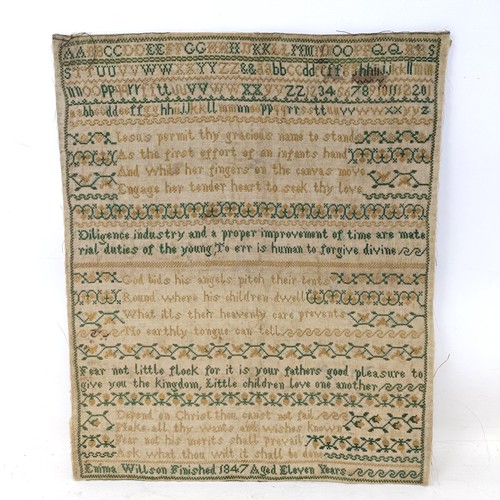 AABBCCDDEEFFGGHHIIKKLLMMNNOOPPQQRRS
STTUUVVWWXXYYZZ&&aabbccddeeffgghhiijjkkllmm
nnooppqqrrssttuuvvwwxxyyzz
aabbccddeeffgghhiijjkkllmmnnooppqqrrssttuuvvwwxxyyz
Jesus permit thy gracious name to stand
As the first effort of an infants hand
And while her fingers on the canvas move
Engage her tender heart to seek thy love
Diligence industry and a proper improvement of time are mate
rial duties of the young To err is human to forgive divine
God bids his angels pitch their tents
Round where his children dwell
What ills their heavenly care prevents
No earthly tongue can tell
Fear not little flock for it is your fathers good pleasure to
give you the kingdom, Little children love one another
Depend on Christ thou canst not fail
Make all thy wants and wishes known
Fear not his merits shall prevail
Ask what thou wilt it shall be done
Emma Willson Finished 1847 Aged Eleven Years